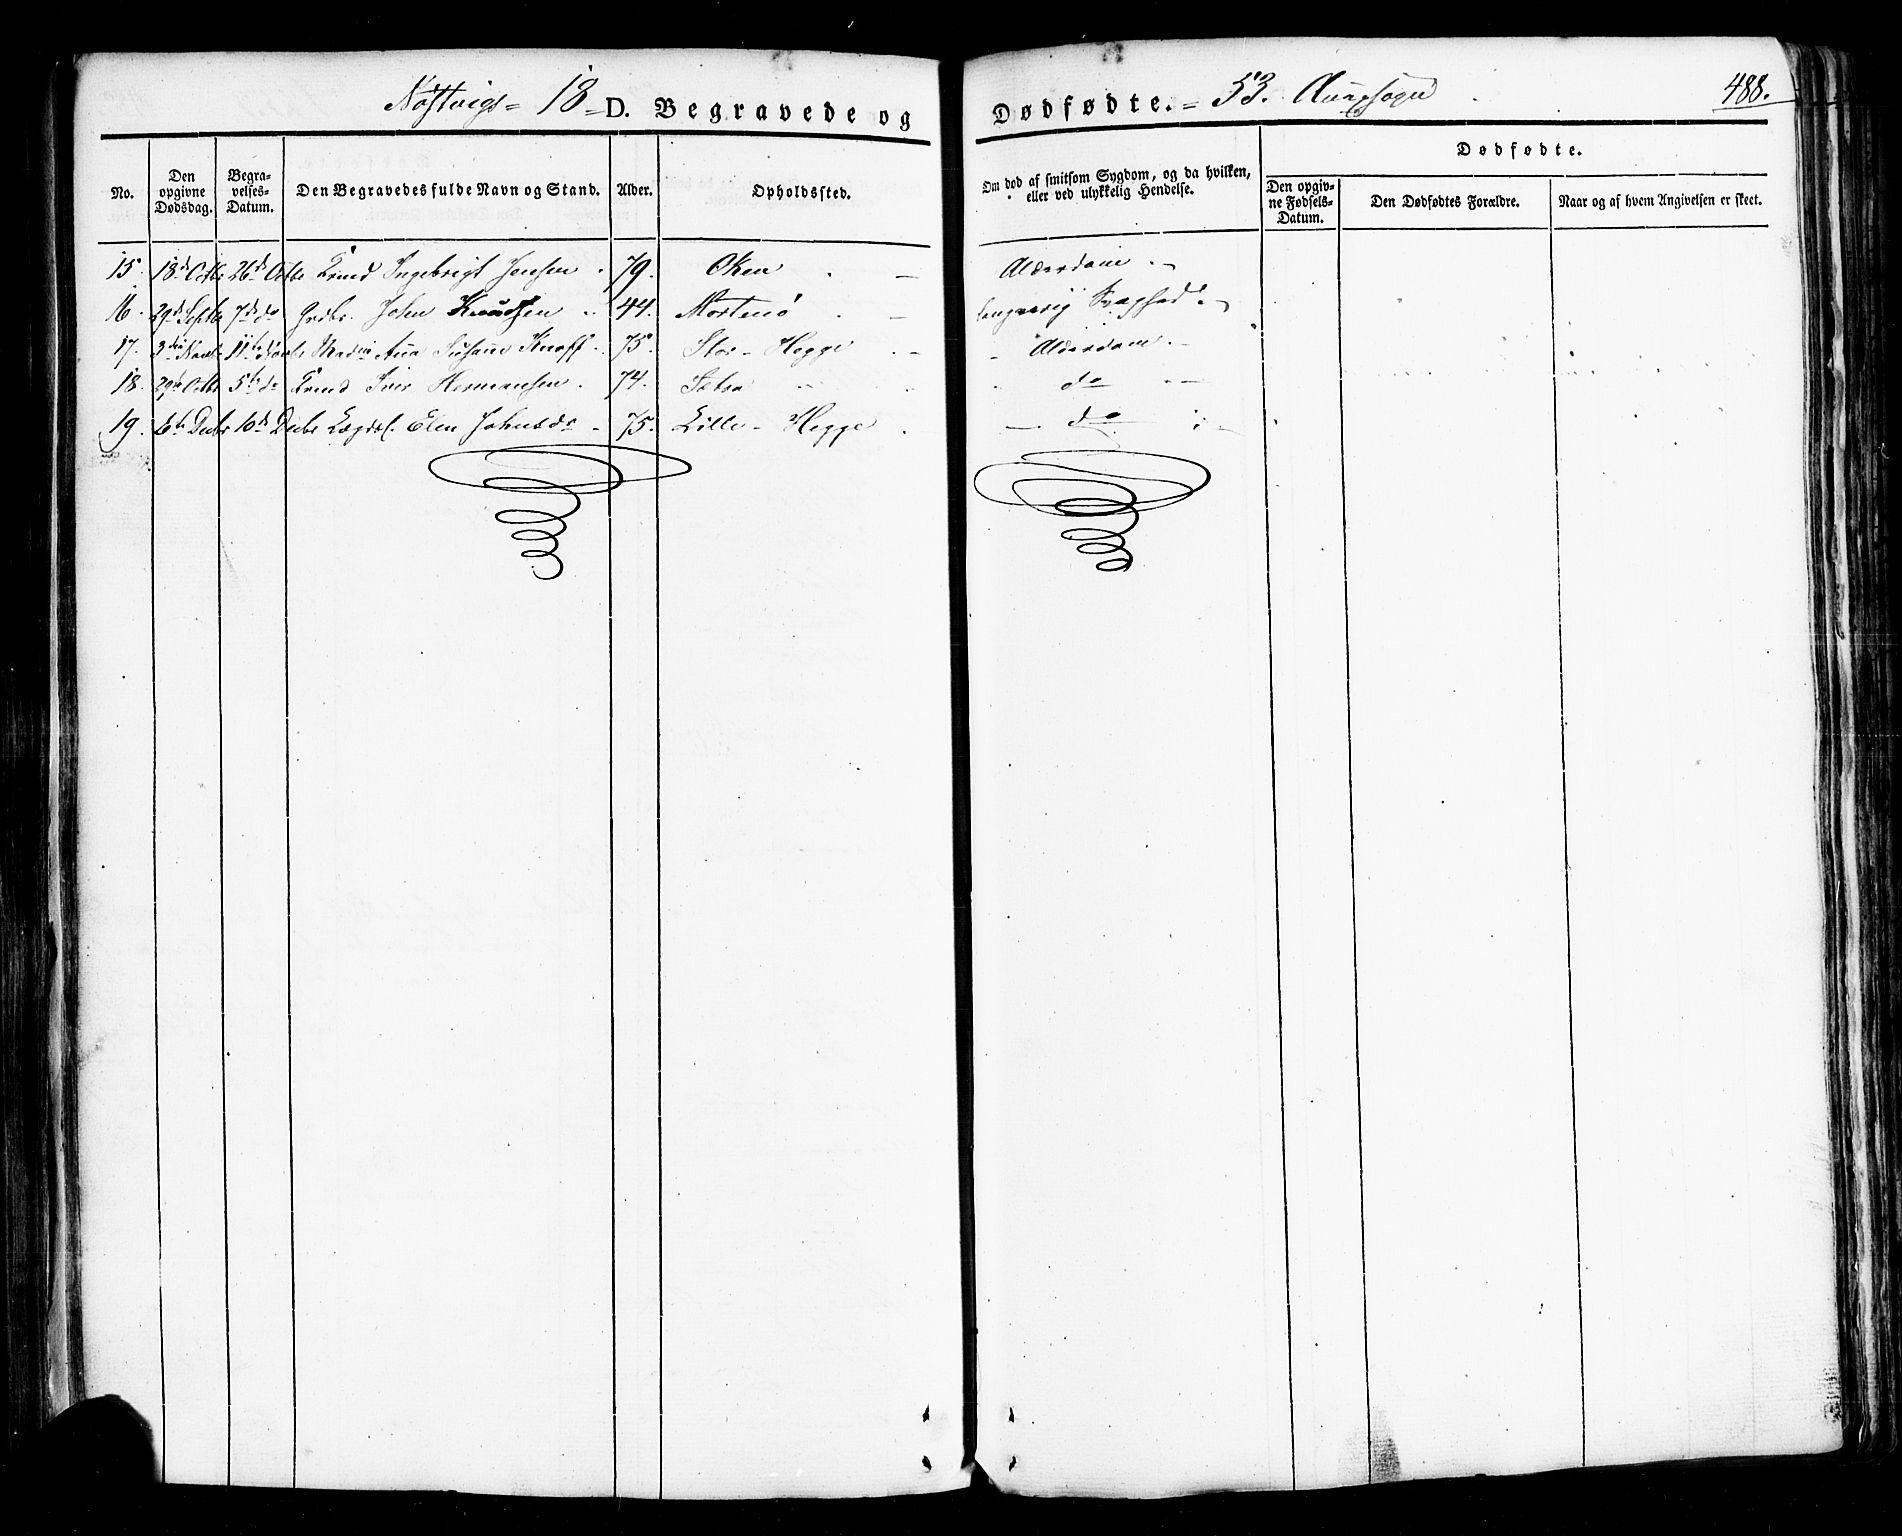 Nøstvigs - 18 - D. Begravede og Dødfødte. - 53. Aurasogn 488.
No.
Den opgivne Dødsdag.
Begravelses-Datum.
Den Begravedes fulde Navn og Stand.
Alder.
Opholdssted.
Om død af smitsom Sygdom, og da hvilken, eller ved ulykkelig Hendelse.
Dødfødte.
Den opgivne Fødsels-Datum.
Den Dødfødtes Forældre.
Naar og af hvem Angivelsen er skeet.
15. 18d Octbr 26d Octbr Ingebrigt Jensen 79. Oken Alderdom
16. 29d Septbr 7d do Grdbr. John Knudsen 44. Mortenø langvarig Svaghed
17. 3die Novbr 11te Novbr Ana Susane Knoff 75. Stor-Hegge Alderdom
18. 29d Octbr 5te do Iver Hermansen 74. Sætra do
19. 6te Decbr 10d Decbr Lægdsl. Elen Johnsdr 75. Lille-Hegge do